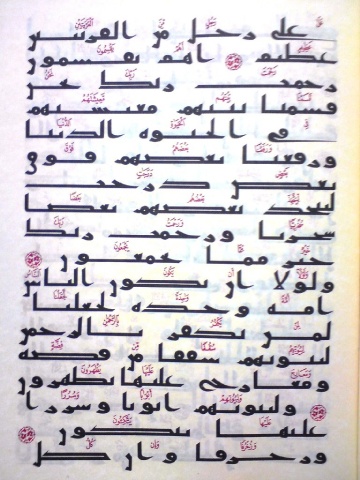 على رجل من القريتين
عظيم اهم يقسمون
رحمت ربك نحن
قسمنا بينهم معيشتهم
في الحيوة الدنيا
ورفعنا بعضهم فوق
بعض درجت
ليتخذ بعضهم بعضا
سخريا ورحمت ربك
خير مما يجمعون
ولولا ان يكون الناس
امة وحدة لجعلنا
لمن يكفر بالرحمن
لبيوتهم سقفا من فضة
ومعارج عليها يظهرون
ولبيوتهم ابوبا وسررا
عليها يتكون
وزخرفا وان كل